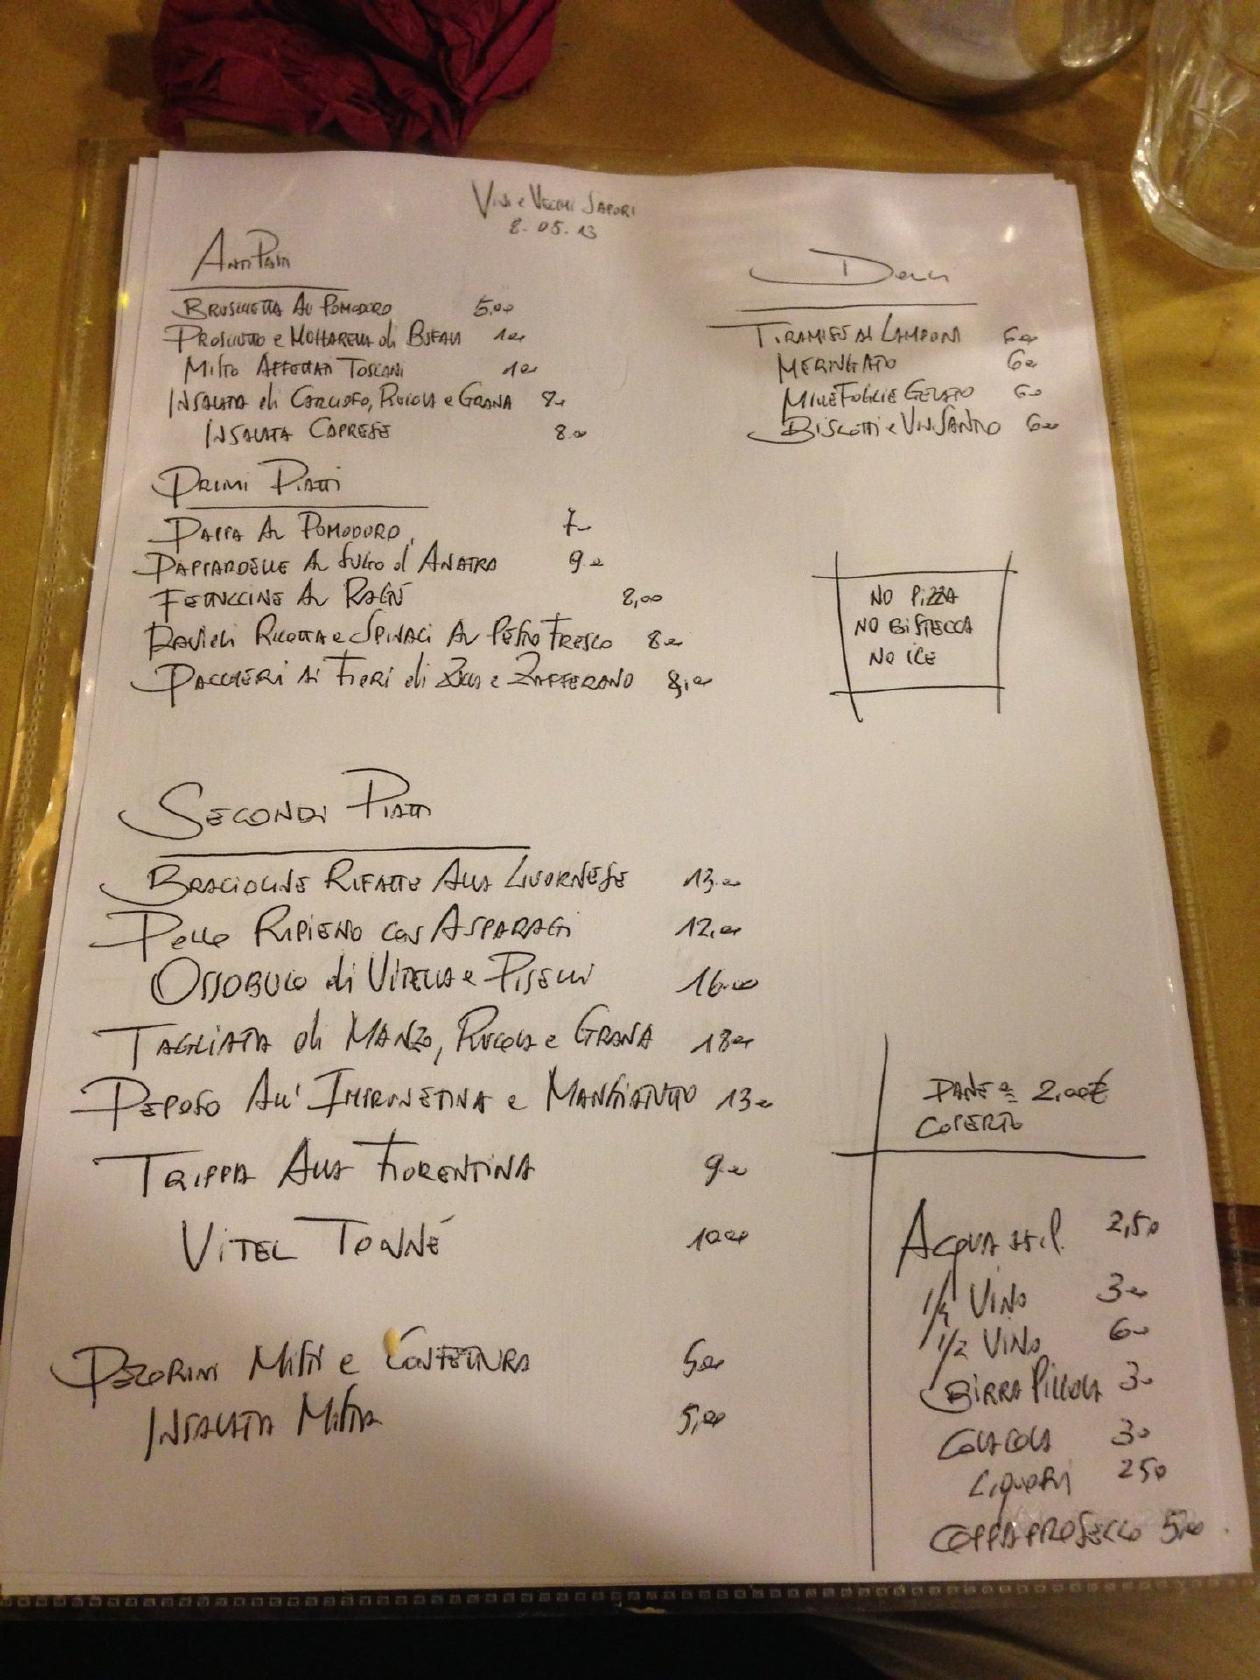 Vini e Vecchi Sapori
8.05.13
AntiPasti
Bruschetta Al Pomodoro 5,00
Prosciutto e Mozzarella di Bufala 10,00
Misto Affettati Toscani 10,00
Insalata di Carciofo, Rucola e Grana 8,00
Insalata Caprese 8,00
Primi Piatti
Pappa Al Pomodoro 7,00
Pappardelle Al Sugo d'Anatra 9,00
Fettuccine Al Ragù 8,00
Ravioli Ricotta e Spinaci Al Pesto Fresco 8,00
Paccheri Ai Fiori di Zucca e Zafferano 8,00
Secondi Piatti
Bracioline Rifatte Alla Livornese 13,00
Pollo Ripieno con Asparagi 12,00
Ossobuco di Vitella e Piselli 16,00
Tagliata di Manzo, Rucola e Grana 18,00
Peposo All'Imprunetina e Mangiatutto 13,00
Trippa Alla Fiorentina 9,00
Vitel Tonné 10,00
Pecorini Misti e Confettura 5,00
Insalata Mista 5,00
Dolci
Tiramisù Ai Lamponi 6,00
Meringato 6,00
MilleFoglie Gelato 6,00
Biscotti e VinSanto 6,00
NO PIZZA
NO BISTECCA
NO ICE
PANE e 2,00€
COPERTO
Acqua 2,50
1/4 Vino 3,00
1/2 Vino 6,00
Birra Piccola 3,00
CocaCola 3,00
Liquori 2,50
Coppa Prosecco 5,00